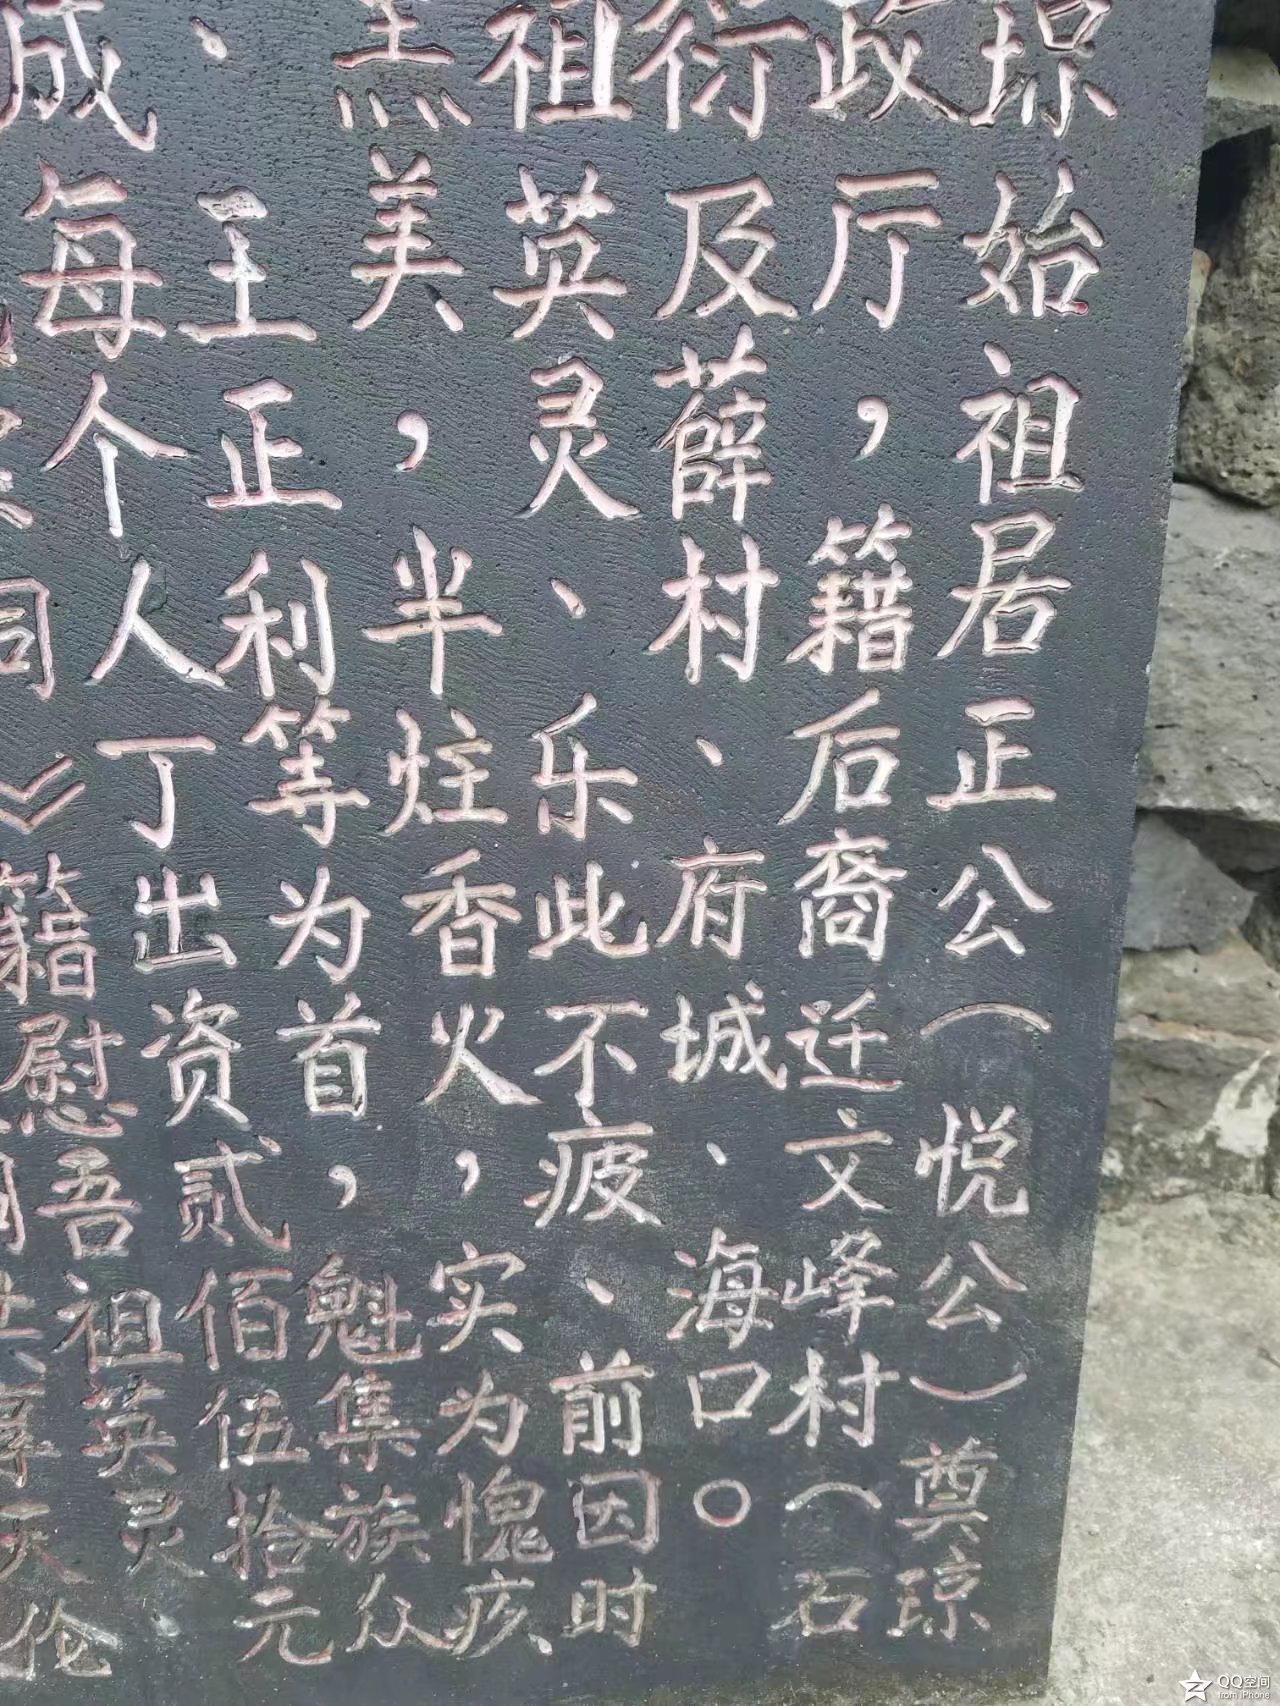 琼始祖居正公（悦公）奠琼
政厅，籍后裔迁文峰村（石
衍及薛村、府城、海口。
祖英灵、乐此不疲、前因时
美，半炷香火，实为愧疚
、王正利等为首，魁集族众
成每个人丁出资贰佰伍拾元
同》籍慰吾祖英灵、
享天伦
QQ空间
from iPhone